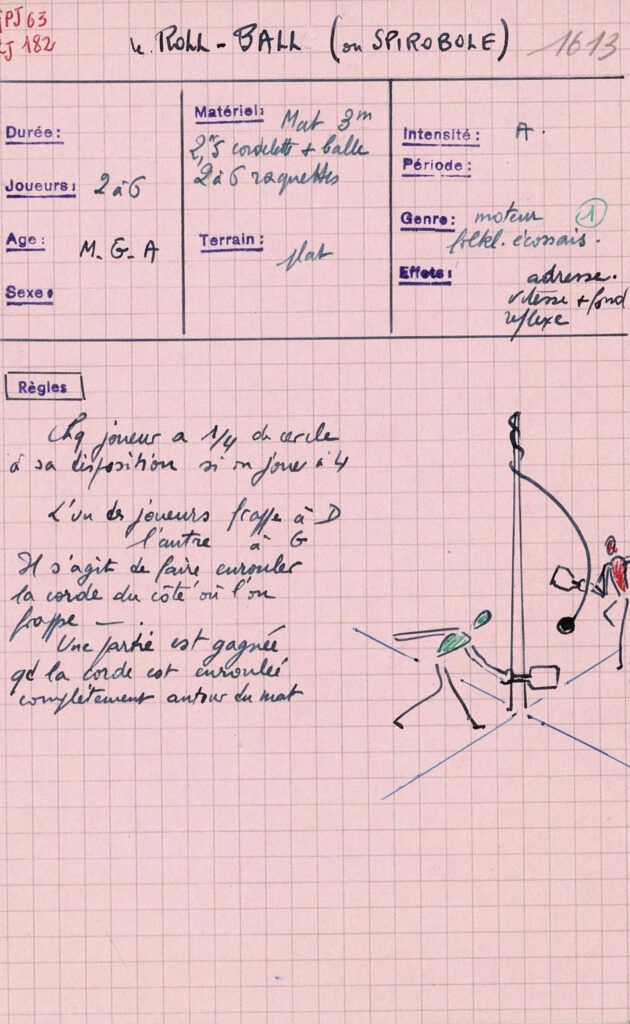 PJ 63
J 182
le ROLL-BALL (ou SPIROBOLE)
1613
Durée:
Joueurs: 2 à 6
Age: M-G-A
Sexe:
Matériel: Mat 3m
2,m5 cordelette + balle
2 à 6 raquettes
Terrain: plat
Intensité: A.
Période:
Genre: moteur 1
écossais.
Effets: adresse.
vitesse + fond
reflexe
Règles
Chq joueur a 1/4 de cercle
à sa disposition si on joue à 4
L'un des joueurs frappe à D
l'autre à G
Il s'agit de faire enrouler
la corde du côté où l'on
frappe —.
Une partie est gagnée
qd la corde est enroulée
complètement autour du mat